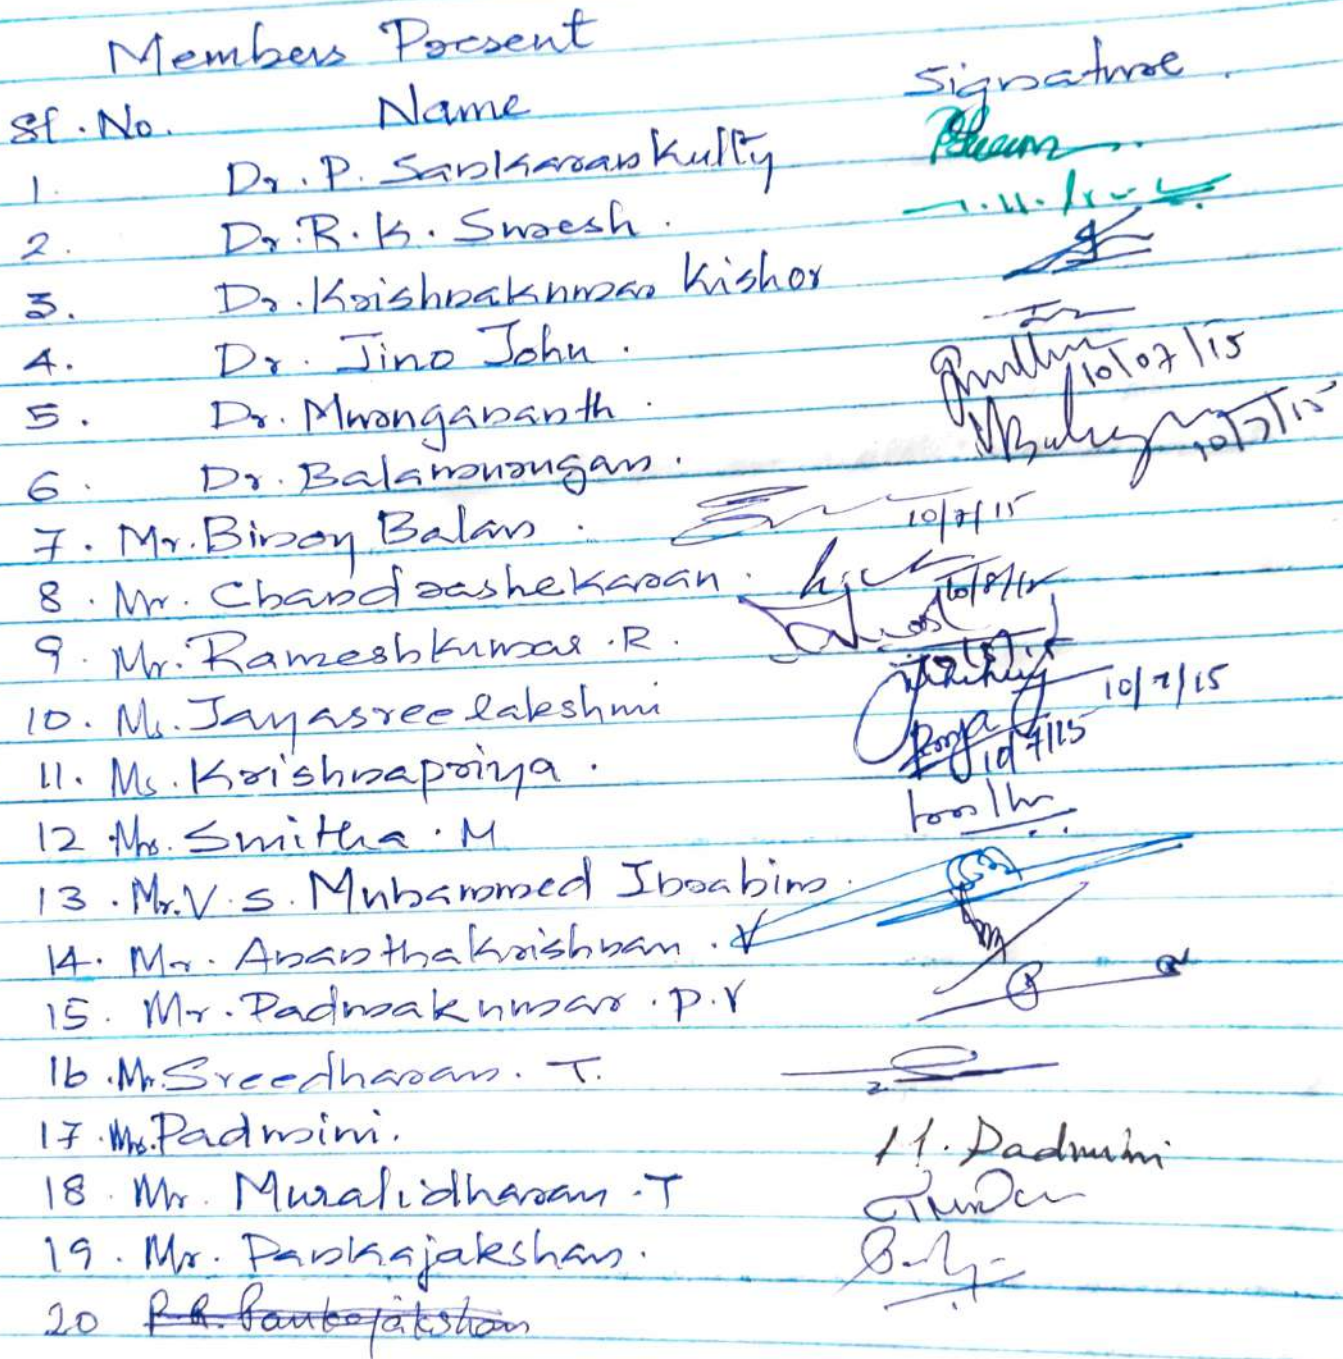 Members Present
Sl. No. Name Signature.
1. Dr. P. Sankarankutty
2. Dr. R. K. Suresh.
3. Dr. Krishnakumar Kishor
4. Dr. Jino John.
5. Dr. Murongananth. 10/07/15
6. Dr. Balamurougan. 10/7/15
7. Mr. Binoy Balan. 10/7/15
8. Mr. Chandrashekaran.
9. Mr. Rameshkumar. R.
10. Ms. Jayasreelakshmi 10/7/15
11. Ms. Krishnapriya. 10/7/15
12 Mrs. Smitha. M
13. Mr. V. S. Muhammed Ibrahim.
14. Mr. Ananthakrishnan. V
15. Mr. Padmakumar. P. V
16. Mr. Sreedharan. T.
17. Mrs. Padmini. M. Padmini
18. Mr. Muralidharan. T
19. Mr. Pankajakshan.
20 P. R. Pankajakshan